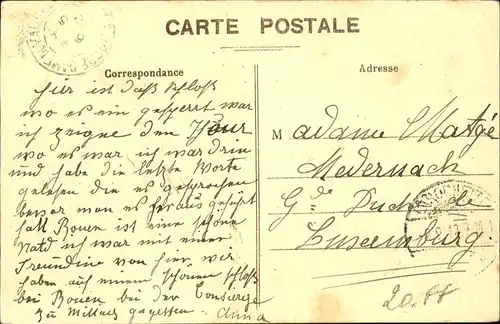 CARTE POSTALE
Correspondance
Adresse
hier ist daß schloß
wo es ein gesperrt war
ich zeigne den
wo es war, ich war drin
und habe die letzte Worte
gelesen die es gesprochen
bevor man es heraus geführt
hatt Rouen ist eine schöne
ich war mit einer
Freundine von hier, wir
haben auf einem schönen schloß
bei Rouen bei der Consierge
zu Mittag gegessen. Anna
Madame Matgé
Medernach
Gd Duché de
Luxemburg.